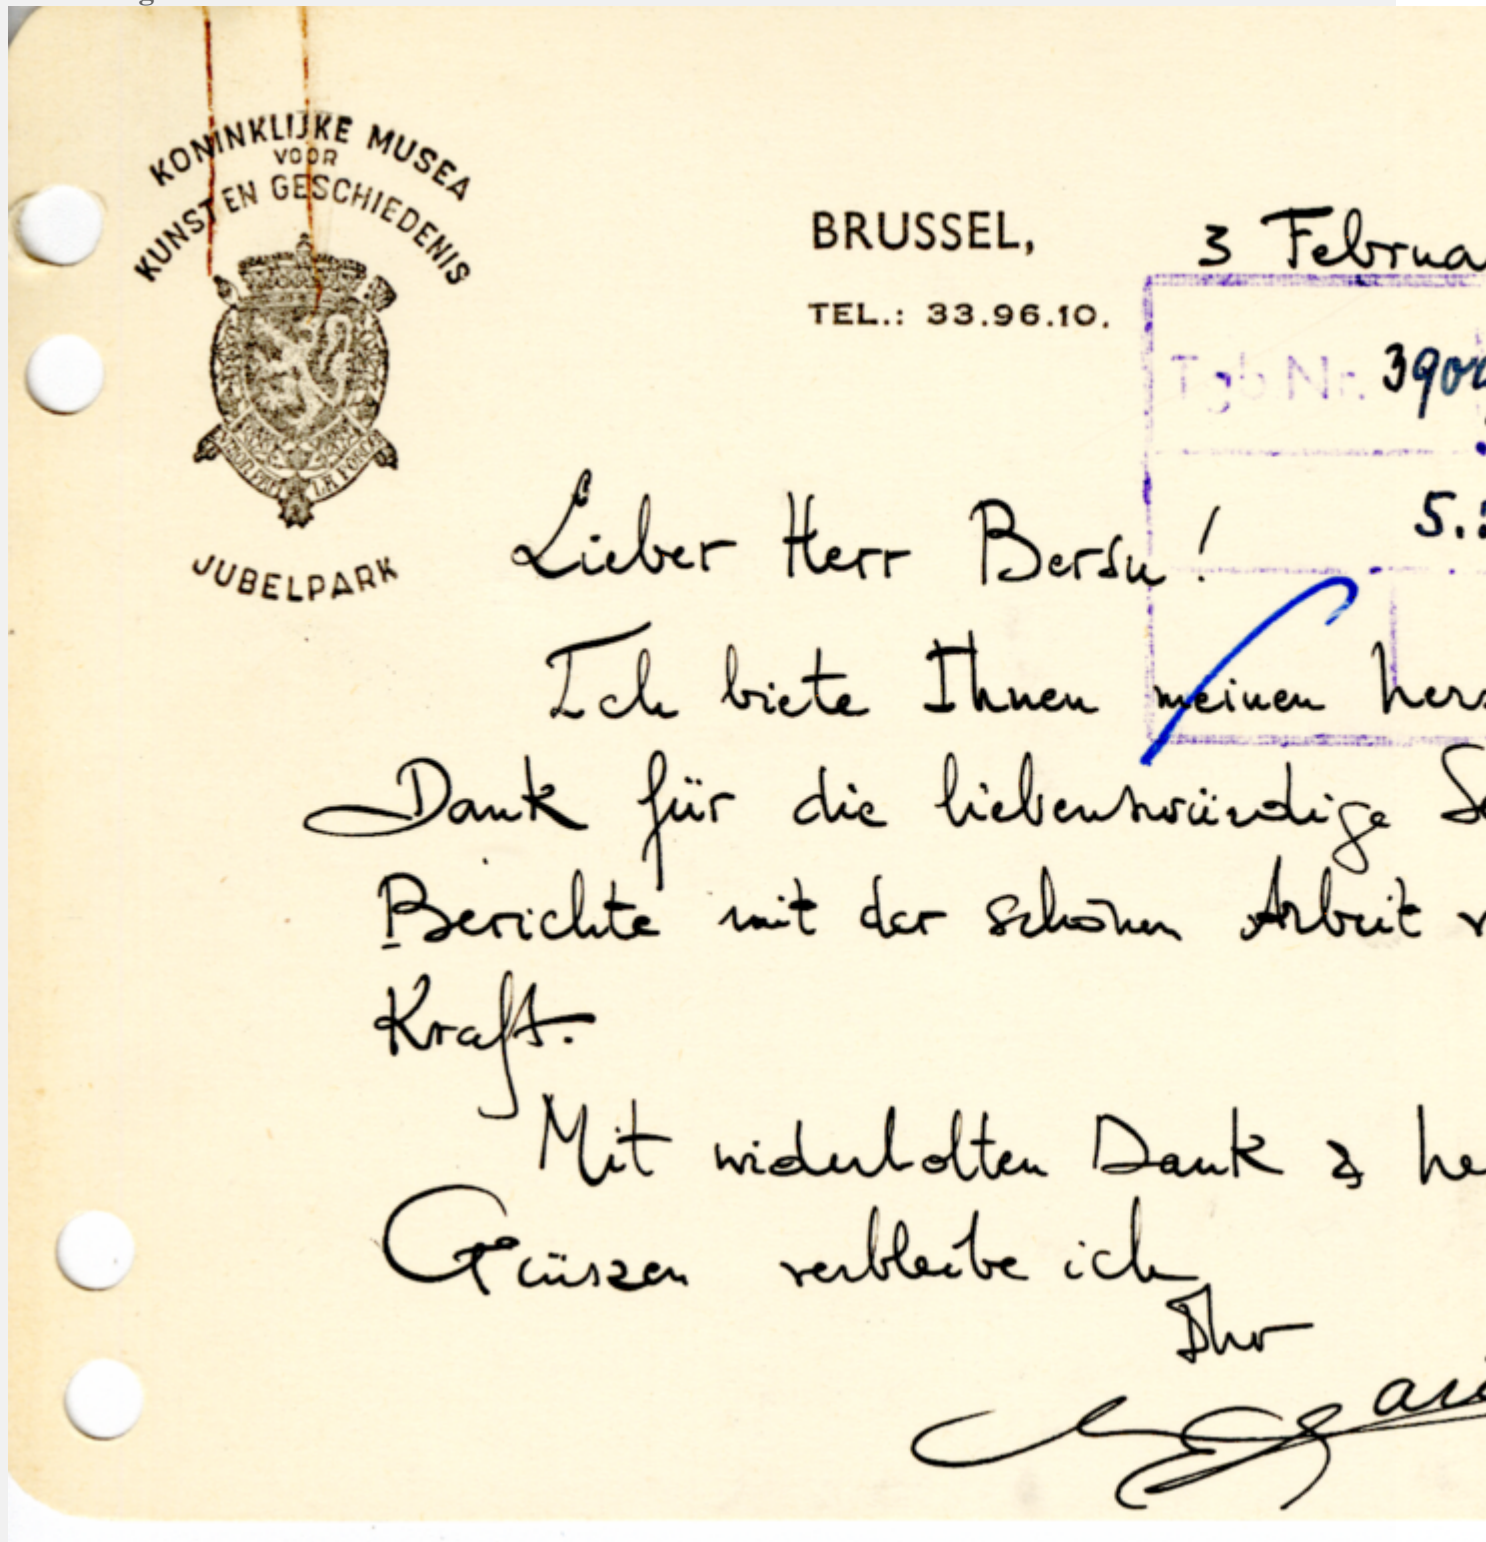 KONINKLIJKE MUSEA
VOOR
KUNST EN GESCHIEDENIS
JUBELPARK
BRUSSEL,
3 Februa
TEL.: 33.96.10.
Tgb.Nr. 390
5.
Lieber Herr Bersu!
Ich biete Ihnen meinen herz
Dank für die liebenswürdige Se
Berichte mit der schönen Arbeit v
Kraft.
Mit widerholten Dank & he
Grüszen verbleibe ich
Ihr